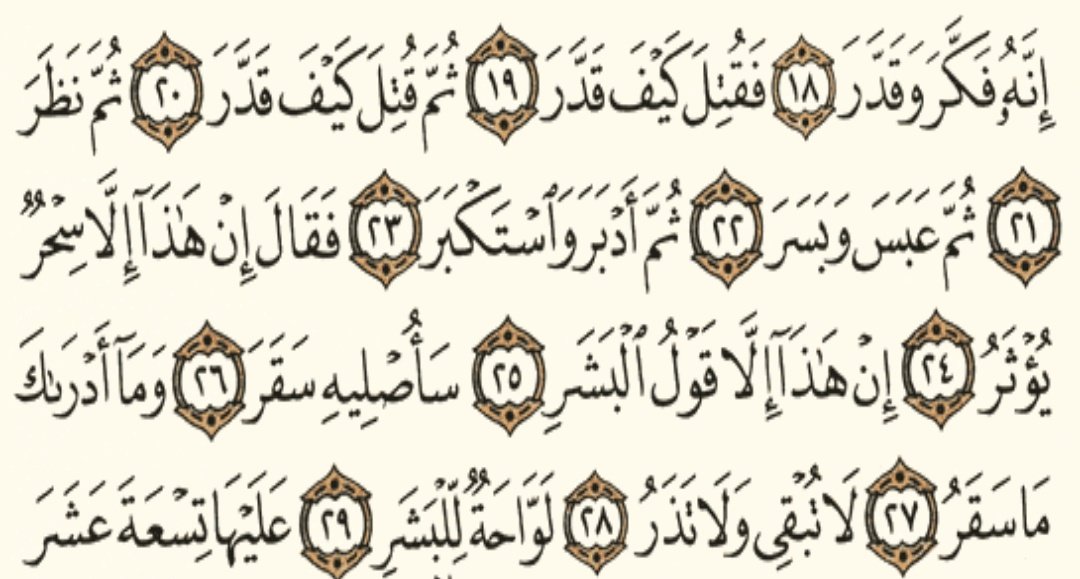 إِنَّهُۥ فَكَّرَ وَقَدَّرَ ١٨ فَقُتِلَ كَيْفَ قَدَّرَ ١٩ ثُمَّ قُتِلَ كَيْفَ قَدَّرَ ٢٠ ثُمَّ نَظَرَ
٢١ ثُمَّ عَبَسَ وَبَسَرَ ٢٢ ثُمَّ أَدْبَرَ وَٱسْتَكْبَرَ ٢٣ فَقَالَ إِنْ هَٰذَآ إِلَّا سِحْرٌ
يُؤْثَرُ ٢٤ إِنْ هَٰذَآ إِلَّا قَوْلُ ٱلْبَشَرِ ٢٥ سَأُصْلِيهِ سَقَرَ ٢٦ وَمَآ أَدْرَىٰكَ
مَا سَقَرُ ٢٧ لَا تُبْقِى وَلَا تَذَرُ ٢٨ لَوَّاحَةٌ لِّلْبَشَرِ ٢٩ عَلَيْهَا تِسْعَةَ عَشَرَ